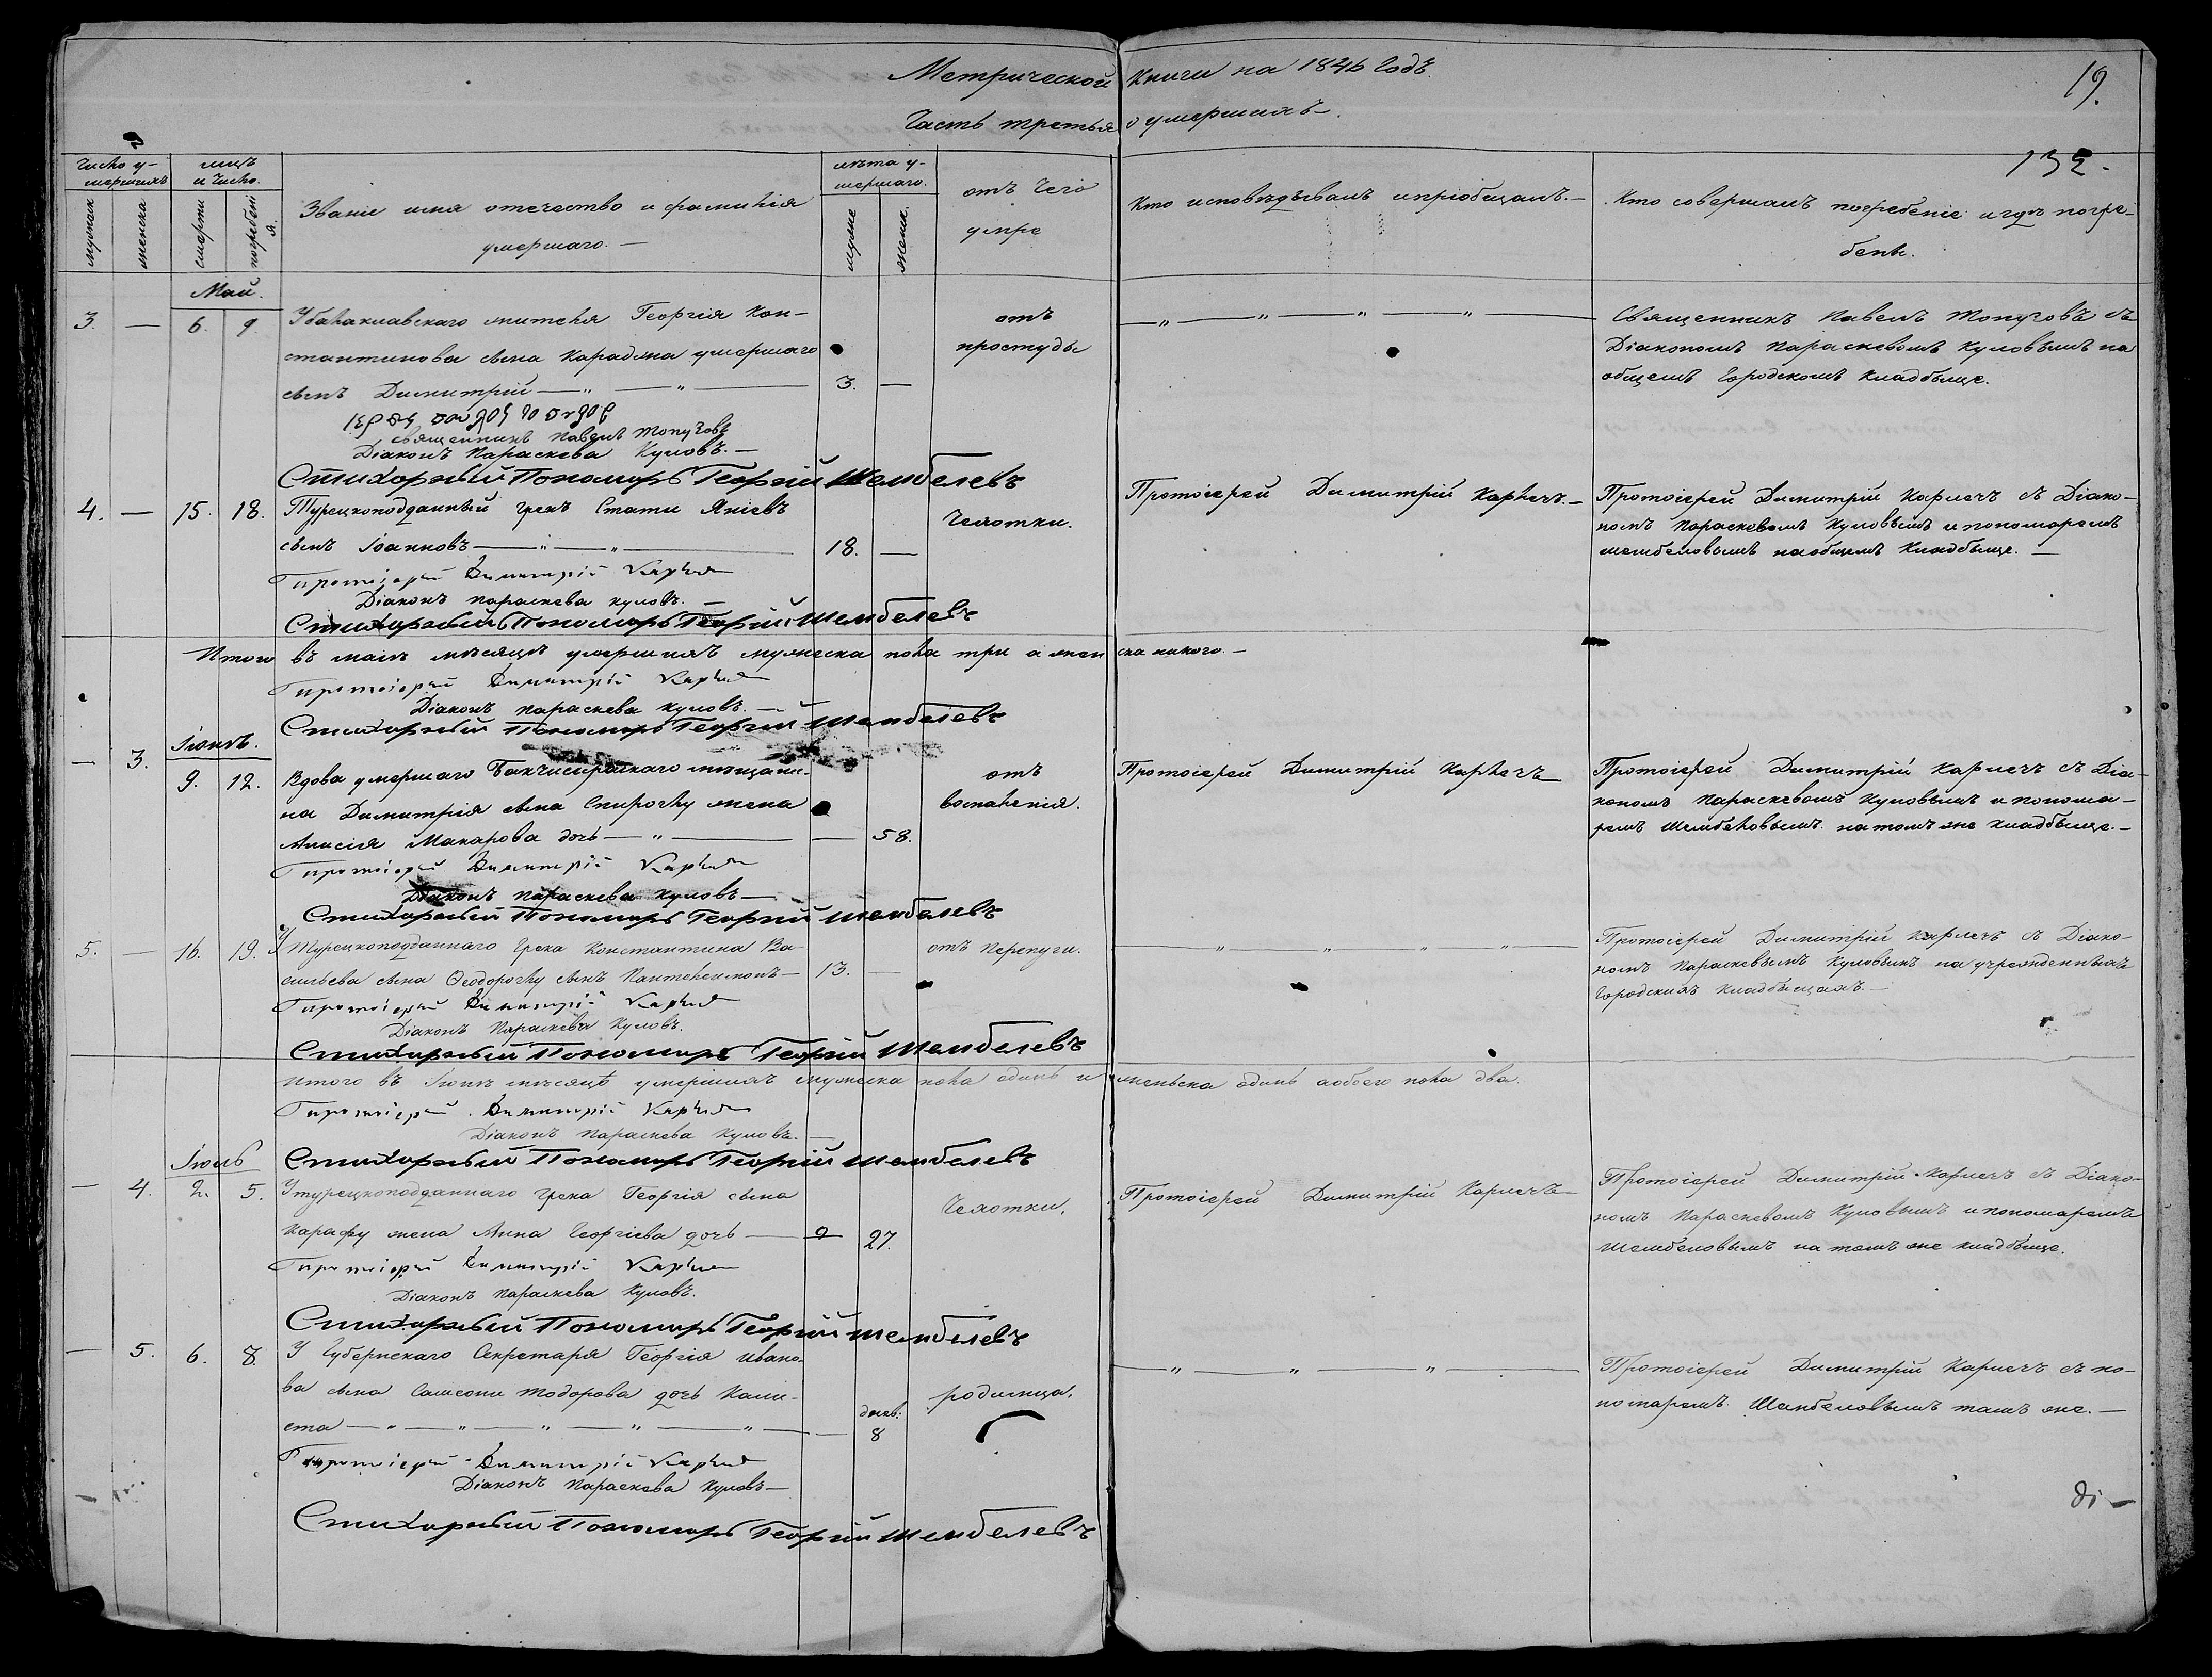 Метрической книги на 1846 годъ.
19.
Часть третья о умершихъ.
132.
Число умершихъ
мужеск
женска
мцъ и число.
смерти
погребенія
Званіе имя отечество и фамилія
умершаго.
лѣта умершаго.
мужс
женск.
отъ чего
умре
Кто исповѣдывалъ и пріобщалъ.
Кто совершалъ погребеніе и гдѣ погре-
бенъ.
Май.
3. — 6. 9. У балаклавскаго жителя Георгія Кон-
стантинова сына Карадма умершаго
сынъ Димитрій — 3. —
отъ
простуды
— „ — „ — „ — „ —
Священникъ Павелъ Топузовъ съ
Діакономъ Параскевомъ Кумовымъ на
общемъ городскомъ кладбыще.
священникъ Павелъ Топузовъ
Діаконъ Параскева Кумовъ. —
Стихарный Пономарь Георгій Шембелевъ
4. — 15. 18. Турецкоподданный грекъ Стати Яніевъ
сынъ Іоанновъ — „ — „ — 18. —
Чехотки.
Протоіерей Димитрій Карлечъ. —
Протоіерей Димитрій Карлечъ съ Діако-
номъ Параскевомъ Кумовымъ и пономаремъ
шембеловымъ на общемъ кладбыще. —
Протоіерей Димитрій
Діаконъ Параскева Кумовъ. —
Стихарный Пономарь Георгій Шембелевъ
Итого въ маіѣ мѣсяцѣ умершихъ мужеска пола три а женска никого. —
Протоіерей Димитрій
Діаконъ Параскева Кумовъ. —
Стихарный Пономарь Георгій Шембелевъ
Іюнь.
— 3. 9. 12. Вдова умершаго Бакчисарайскаго мѣщани-
на Димитрія сына Спироглу жена
Анисія Макарова дочь — „ — — 58.
отъ
воспаленія.
Протоіерей Димитрій Карлечъ
Протоіерей Димитрій Карлечъ съ Діа-
кономъ Параскевомъ Кумовымъ и понома-
ремъ Шембеловымъ. на томъ же кладбыще. —
Протоіерей Димитрій
Діаконъ Параскева Кумовъ —
Стихарный Пономарь Георгій Шембелевъ
5. — 16. 19. У Турецкоподданнаго грека Константина Ва-
сильева сына Ѳеодороглу сынъ Пантелеимонъ — 13. —
отъ перепуги.
— „ — „ — „ — „ —
Протоіерей Димитрій Карлечъ съ Діако-
номъ Параскевымъ Кумовымъ на учрежденныхъ
городскихъ кладбыщахъ. —
Протоіерей Димитрій
Діаконъ Параскева Кумовъ.
Стихарный Пономарь Георгій Шембелевъ
Итого въ Іюнѣ мѣсяцѣ умершихъ мужеска пола одинъ и женьска одинъ а обоего пола два.
Протоіерей Димитрій
Діаконъ Параскева Кумовъ. —
Іюль
Стихарный Пономарь Георгій Шембелевъ
— 4. 2. 5. У турецкоподданнаго грека Георгія сына
Карафу жена Анна Георгіева дочь — 27.
Чехотки.
Протоіерей Димитрій Карлечъ
Протоіерей Димитрій Карлечъ съ Діако-
номъ Параскевомъ Кумовымъ и пономаремъ
Шембеловымъ на томъ же кладбыще.
Протоіерей Димитрій
Діаконъ Параскева Кумовъ.
Стихарный Пономарь Георгій Шембелевъ
— 5. 6. 8. У Губернскаго Секретаря Георгія Ивано-
ва сына Самсони Тодорова дочь Кали-
ста — „ — „ — „ — „ — „ — — днев: 8
родимца.
— „ — „ — „ —
Протоіерей Димитрій Карлечъ съ по-
номаремъ Шенбеловымъ тамъ же. —
Протоіерей Димитрій
Діаконъ Параскева Кумовъ —
Стихарный Пономарь Георгій Шембелевъ